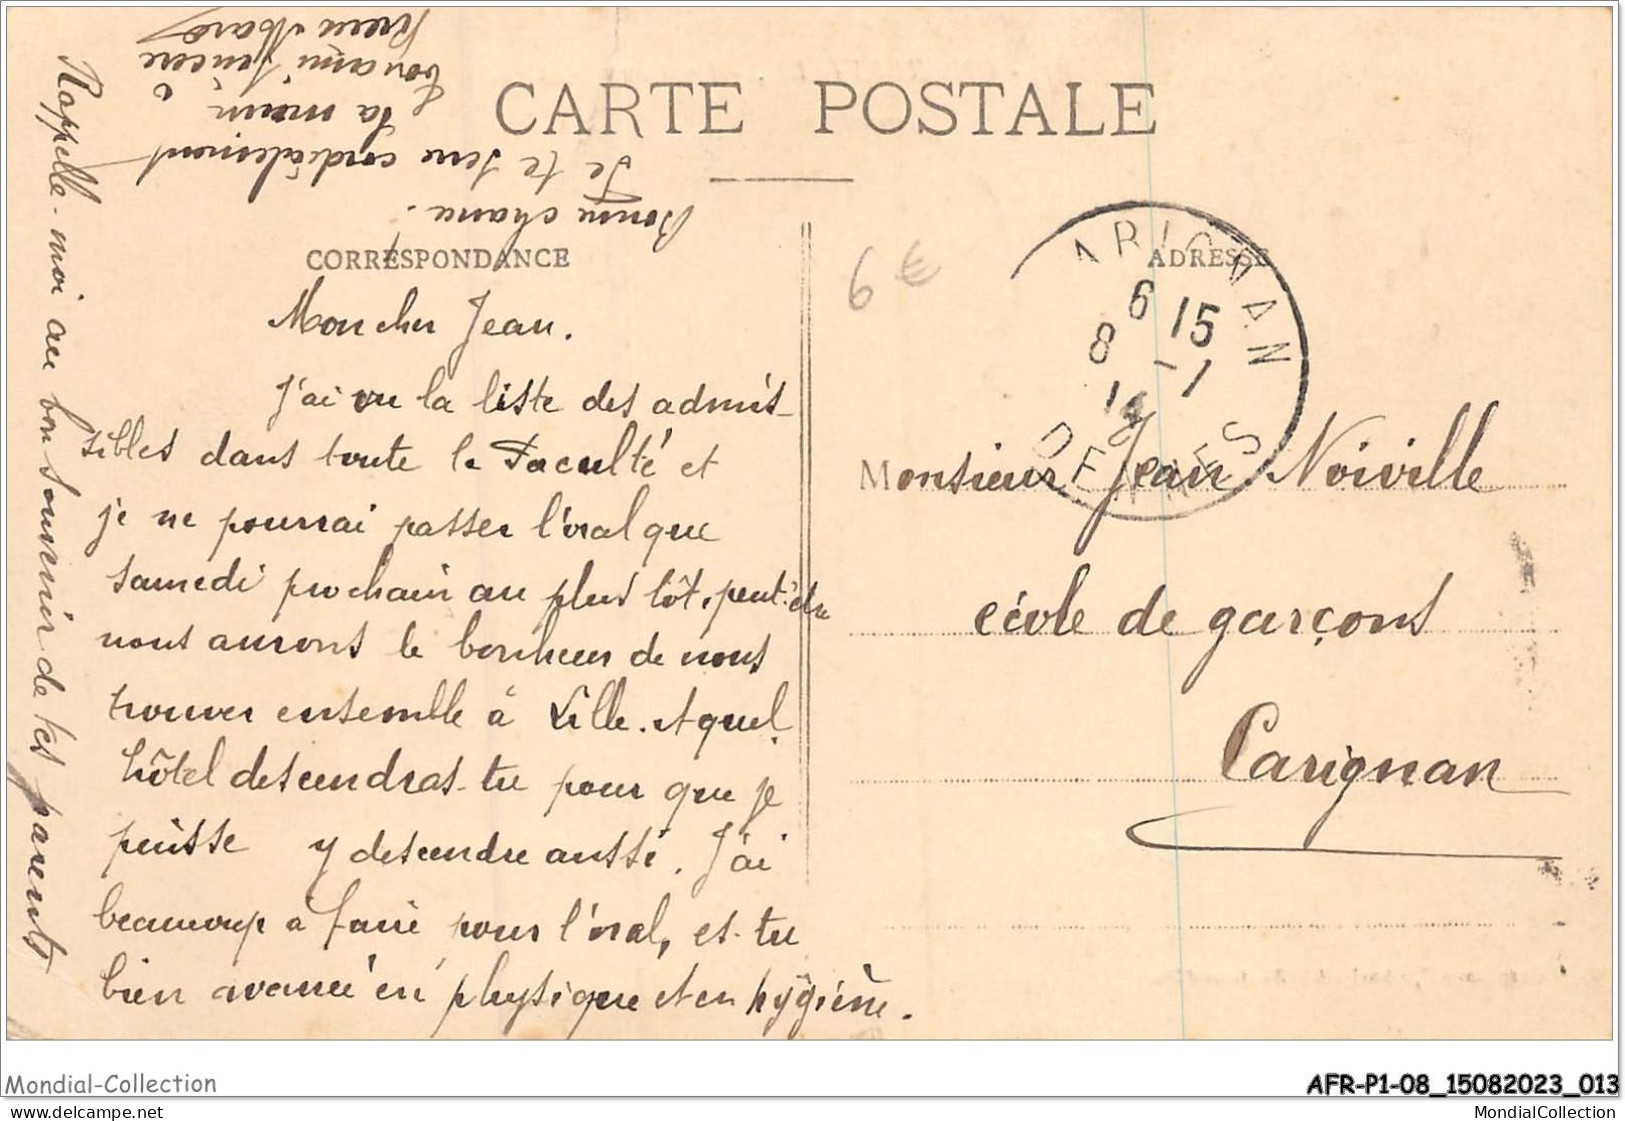 CARTE POSTALE
CORRESPONDANCE
ADRESSE
Mon cher Jean.
J'ai vu la liste des admis-
sibles dans toute la Faculté et
je ne pourrai passer l'oral que
samedi prochain au plus tôt, peut-être
nous aurons le bonheur de nous
trouver ensemble à Lille. A quel
hôtel descendras-tu pour que je
puisse y descendre aussi. J'ai
beaucoup à faire pour l'oral, es-tu
bien avancé en physique et en hygiène.
Rappelle-moi au bon souvenir de tes parents
Bonne chance.
Je te serre cordialement
la main
Ton ami sincère
6 €
CARIGNAN
6 15
8 - 1
14
ARDENNES
Monsieur Jean Noiville
école de garçons
Carignan
Mondial-Collection
delcampe.net
AFR-P1-08_15082023_013
MondialCollection